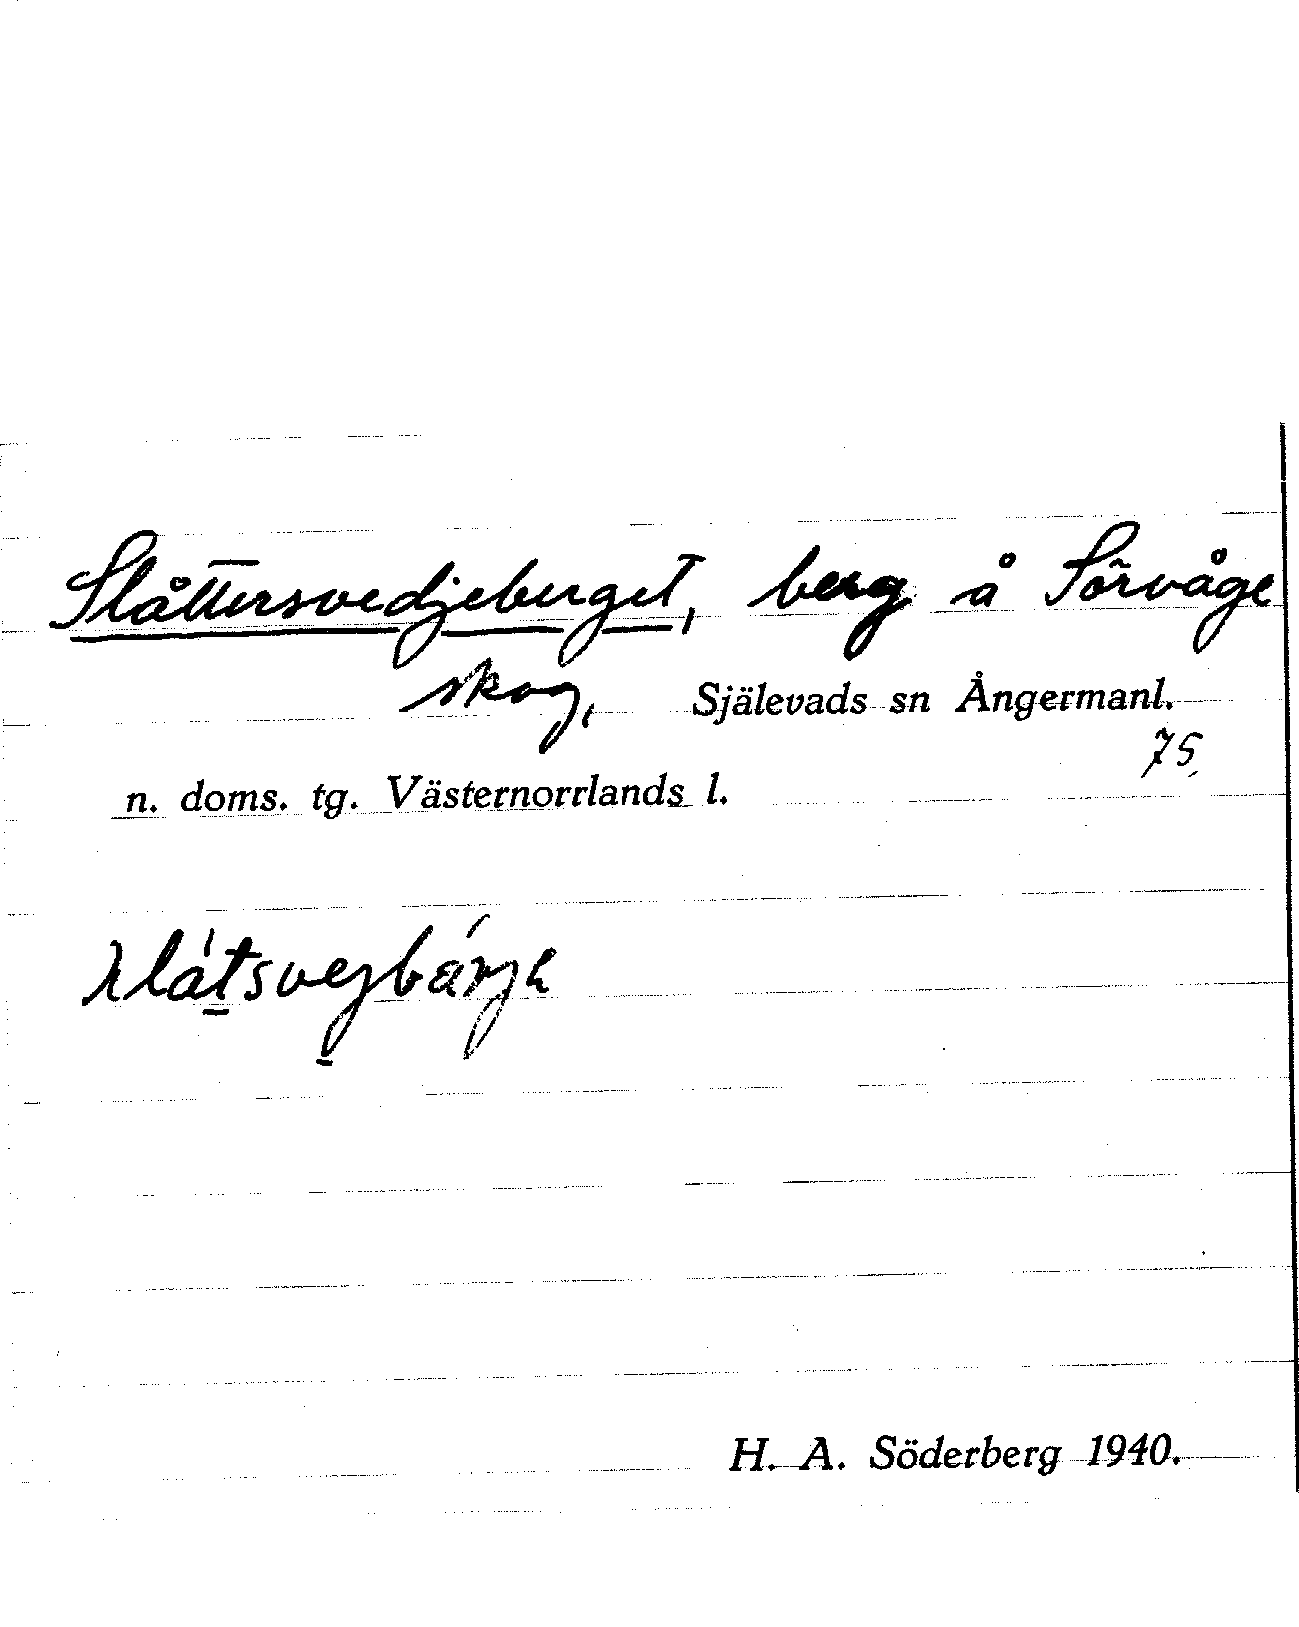 Slåttersvedjeberget, berg å Sörvåge
skog, Själevads sn Ångermanl.
75.
n. doms. tg. Västernorrlands l.
H. A. Söderberg 1940.